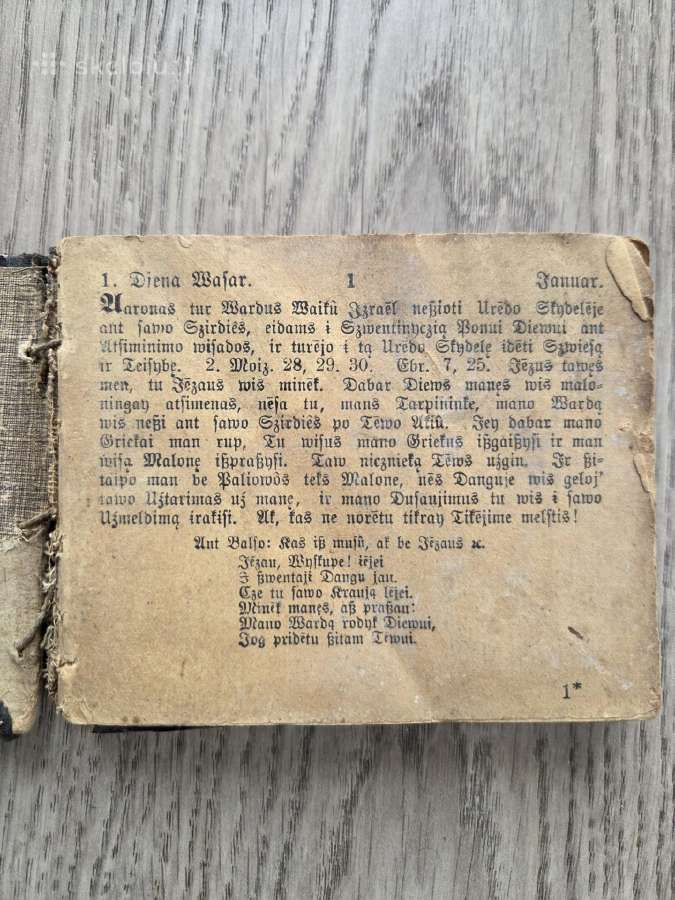 skelbiu.lt
1. Djena Waſar. 1 Januar.
Aaronas tur Wardus Waikû Jzraël neßioti Urêdo Skydelêje
ant ſawo Szirdiês, eidams i Szwentinyczią Ponui Diewui ant
Atſiminimo wiſados, ir turêjo i tą Urêdo Skydelę idêti Szwieſą
ir Teiſybę. 2. Moiz. 28, 29. 30. Ebr. 7, 25. Jêzus tawęs
men, tu Jêzaus wis minêk. Dabar Diews manęs wis malo-
ningay atſimenas, nêſa tu, mans Tarpininke, mano Wardą
wis neßi ant ſawo Szirdiês po Têwo Akiû. Jey dabar mano
Griekai man rup, Tu wiſus mano Griekus ißgaißyſi ir man
wiſą Malonę ißpraßyſi. Taw nieznieką Têws užgin. Ir ßi-
taipo man be Paliowôs teks Malone, nês Danguje wis geloj'
tawo Užtarimas už manę, ir mano Duſaujimus tu wis i ſawo
Užmeldimą irakiſi. Ak, kas ne norêtu tikray Tikêjime melſtis!
Ant Balſo: Kas iß muſû, ak be Jêzaus ꝛc.
Jêzau, Wyſkupe! iêjei
J ßwentaji Dangu jau.
Cze tu ſawo Kraują lêjei.
Minêk manęs, aß praßau:
Mano Wardą rodyk Diewui,
Jog pridêtu ßitam Têwui.
1*